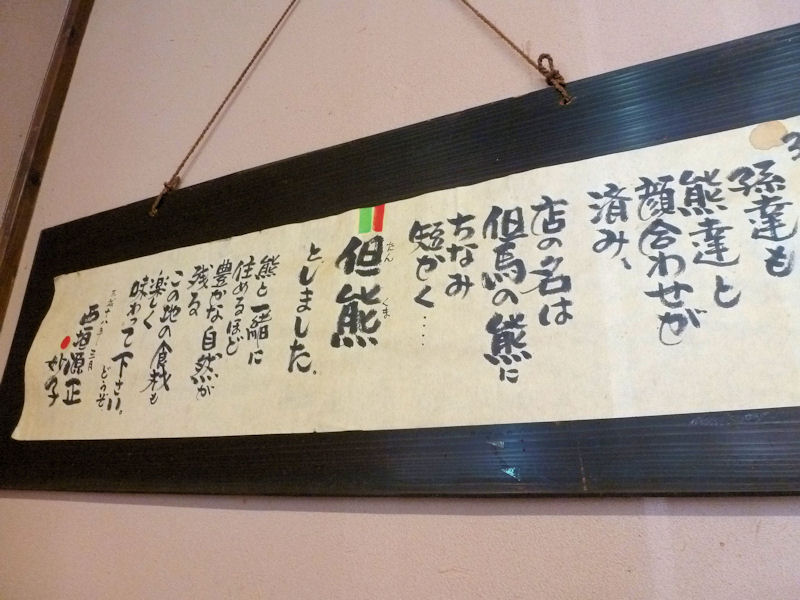 孫達も
熊達と
顔合わせが
済み、
店の名は
但馬の熊に
ちなみ
短かく…
但熊
たん くま
としました。
熊と一緒に
住めるほど
豊かな自然が
残る
この地の食材も
楽しく
味わって下さい。
どうぞ
三月
西垣源正